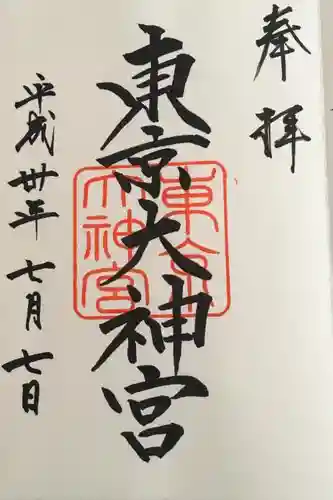 奉拝
東京大神宮
東京
大神宮
平成卅年七月七日